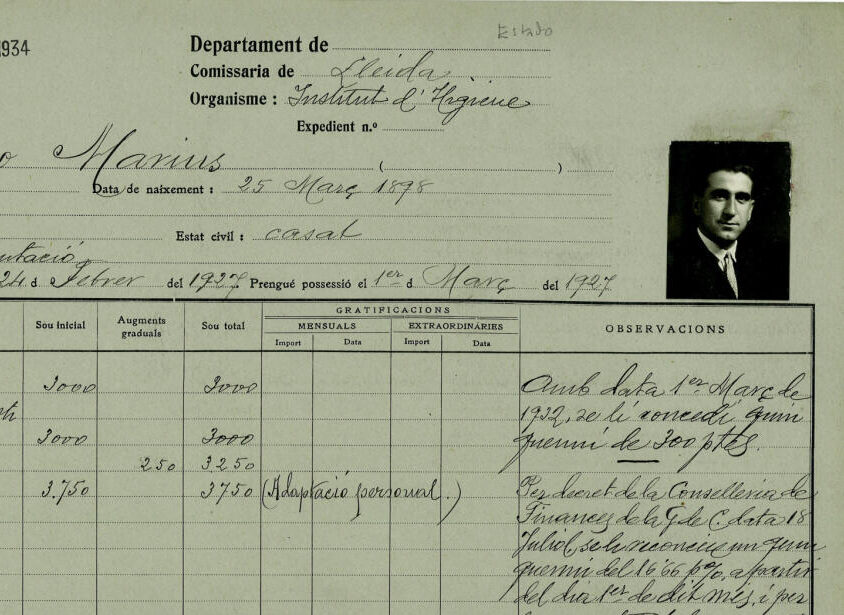 Estado
1934
Departament de
Comissaria de Lleida
Organisme : Institut d'Higiene
Expedient n.º
o Marius ( )
Data de naixement : 25 Març 1898
Estat civil : casat
utació
24 d Febrer del 1927. Prengué possessió el 1er d Març del 1927
Sou inicial Augments graduals Sou total GRATIFICACIONS OBSERVACIONS
MENSUALS EXTRAORDINÀRIES
Import Data Import Data
3000 3000 Amb data 1er Març de
1932, se li concedí quin
3000 3000 quenni de 300 ptes.
250 3250
3.750 3750 (Adaptació personal.) Per decret de la Conselleria de
Finances de la G. de C. data 18
Juliol, se li reconeix un quin
quenni del 16'66 p%, a partir
del dia 1er de dit mes, i per